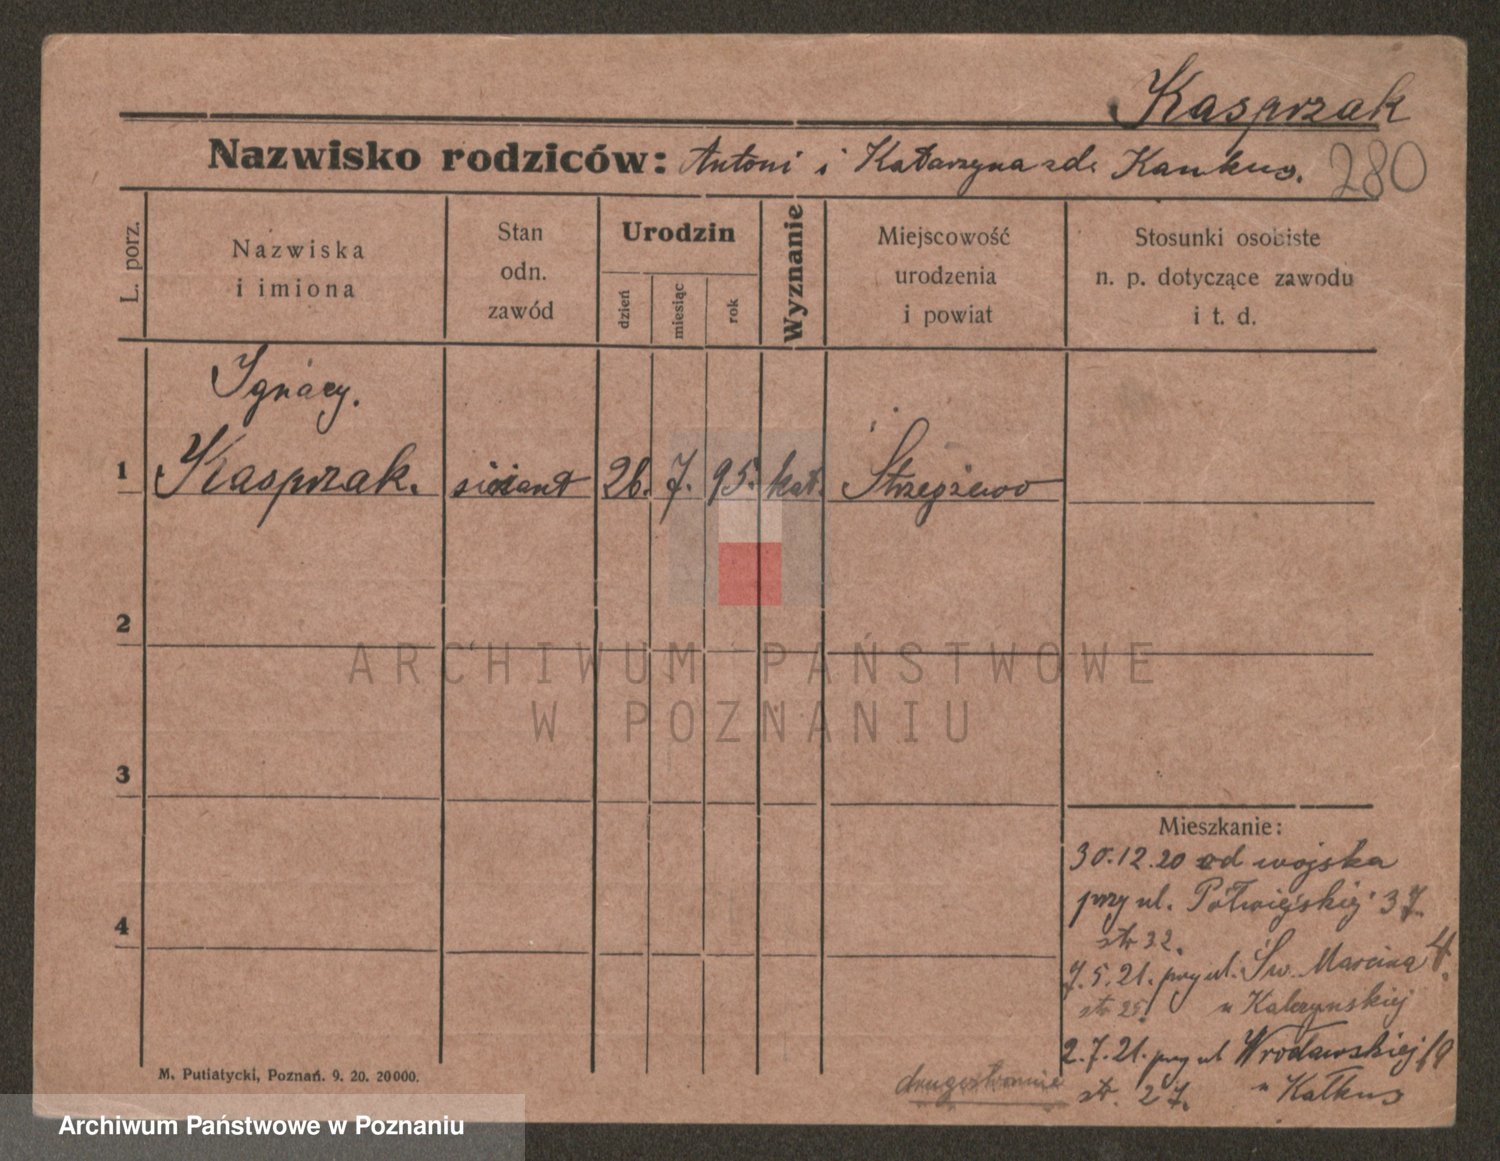 Kasprzak
Nazwisko rodziców: Antoni i Katarzyna zd. Kankus.
280
L. porz.
Nazwiska
i imiona
Stan
odn.
zawód
Urodzin
dzień
miesiąc
rok
Wyznanie
Miejscowość
urodzenia
i powiat
Stosunki osobiste
n. p. dotyczące zawodu
i t. d.
Ignacy.
1 Kasprzak. 26. 7. 95. kat. Strzeżewo
2
ARCHIWUM PAŃSTWOWE
W POZNANIU
3
Mieszkanie:
30.12.20 od wojska
przy ul. Półwiejskiej 37.
4
str 32.
7.5.21. przy ul. Św. Marcina 4.
str 25. u
2.7.21. przy ul Wrocławskiej 19
str. 27. u Kałkus
drugostronnie
M. Putiatycki, Poznań. 9. 20. 20000.
Archiwum Państwowe w Poznaniu